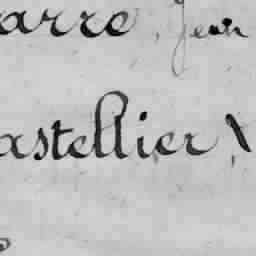 arre, Jean
astellier